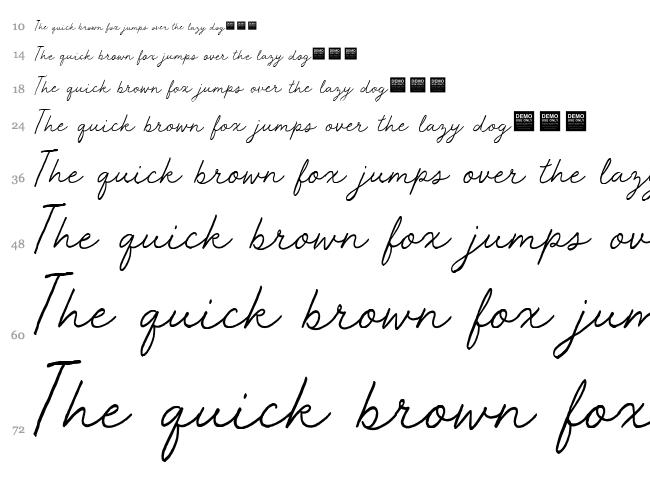 10 The quick brown fox jumps over the lazy dog
14 The quick brown fox jumps over the lazy dog DEMO
18 The quick brown fox jumps over the lazy dog DEMO DEMO DEMO
24 The quick brown fox jumps over the lazy dog DEMO USE ONLY DEMO USE ONLY DEMO USE ONLY
36 The quick brown fox jumps over the lazy
48 The quick brown fox jumps ov
60 The quick brown fox jum
72 The quick brown fox